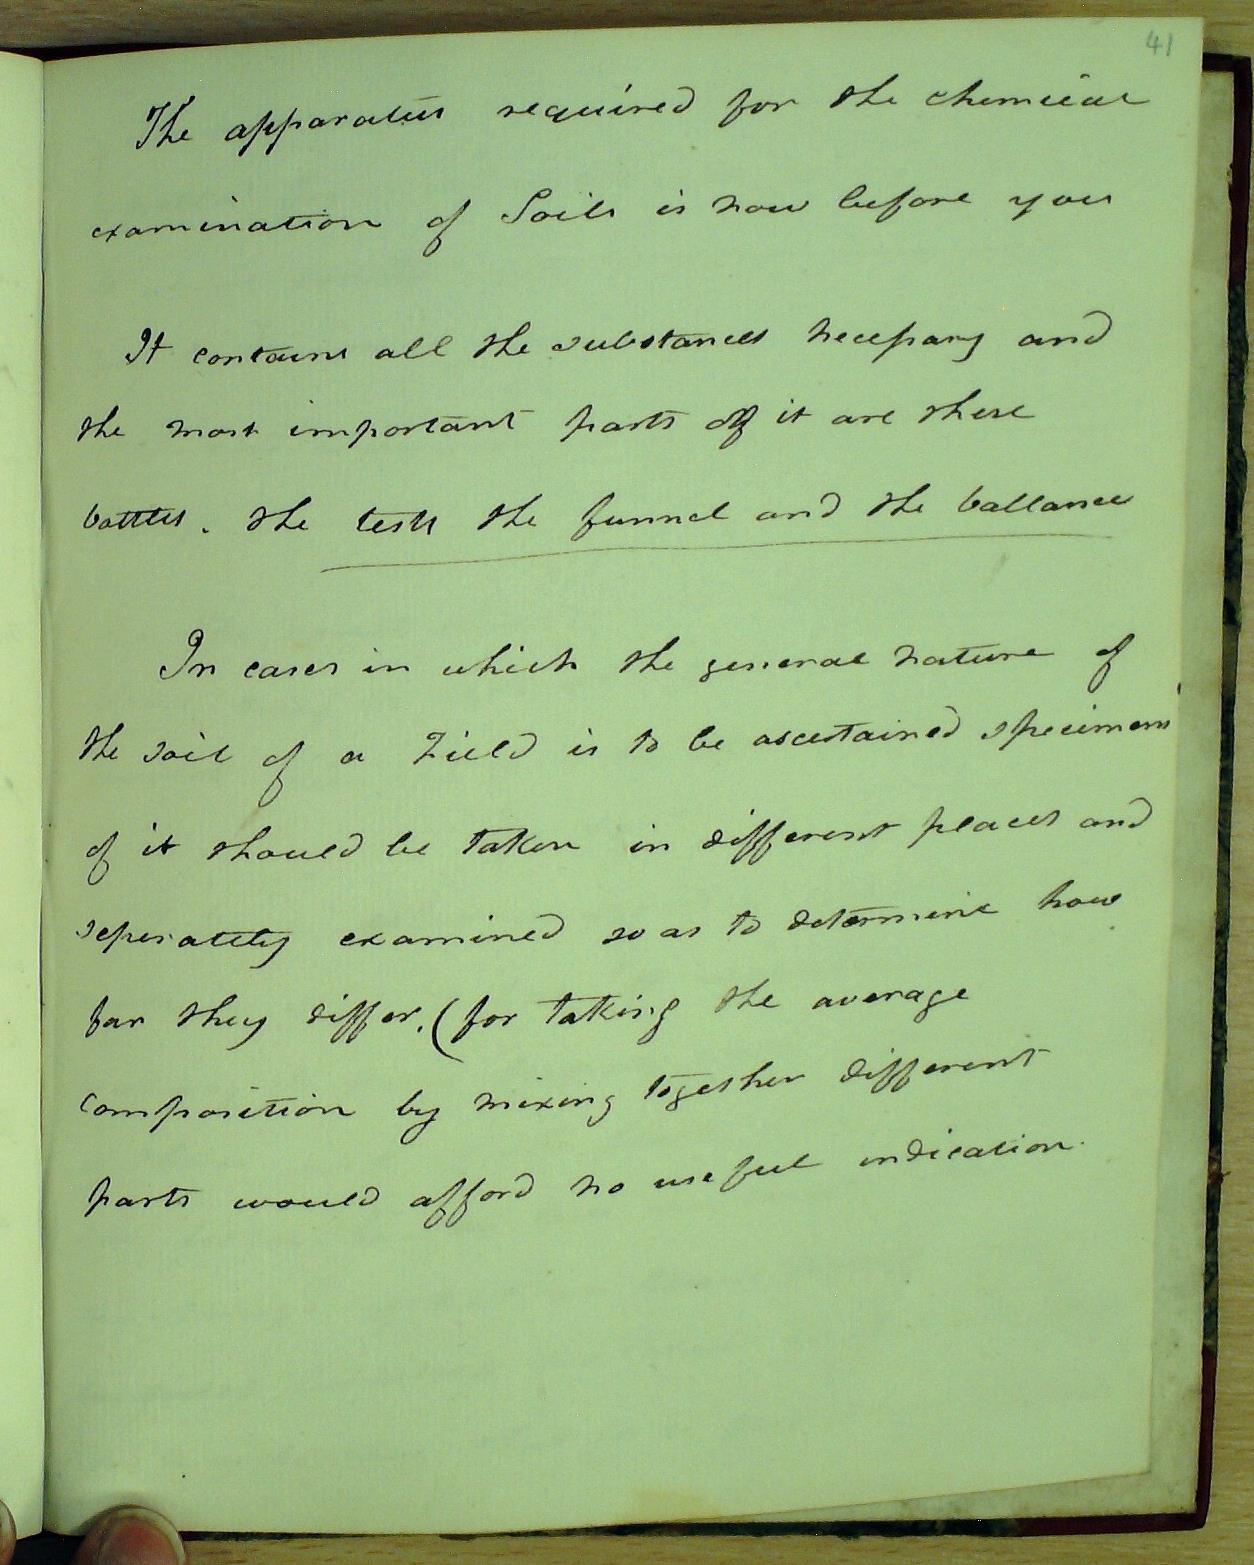 41
The apparatus required for the chemical
examination of Soils is now before you
It contains all the substances necessary and
the most important parts of it are these
bottles. the tests the funnel and the ballance
In cases in which the general nature of
the soil of a Field is to be ascertained specimens
of it should be taken in different places and
seperately examined so as to determine how
far they differ. (for taking the average
composition by mixing together different
parts would afford no useful indication.